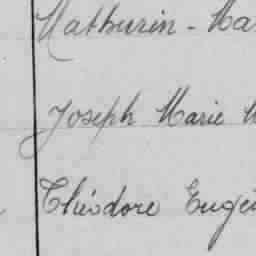 Mathurin - Ma
Joseph Marie
Théodore Eugè